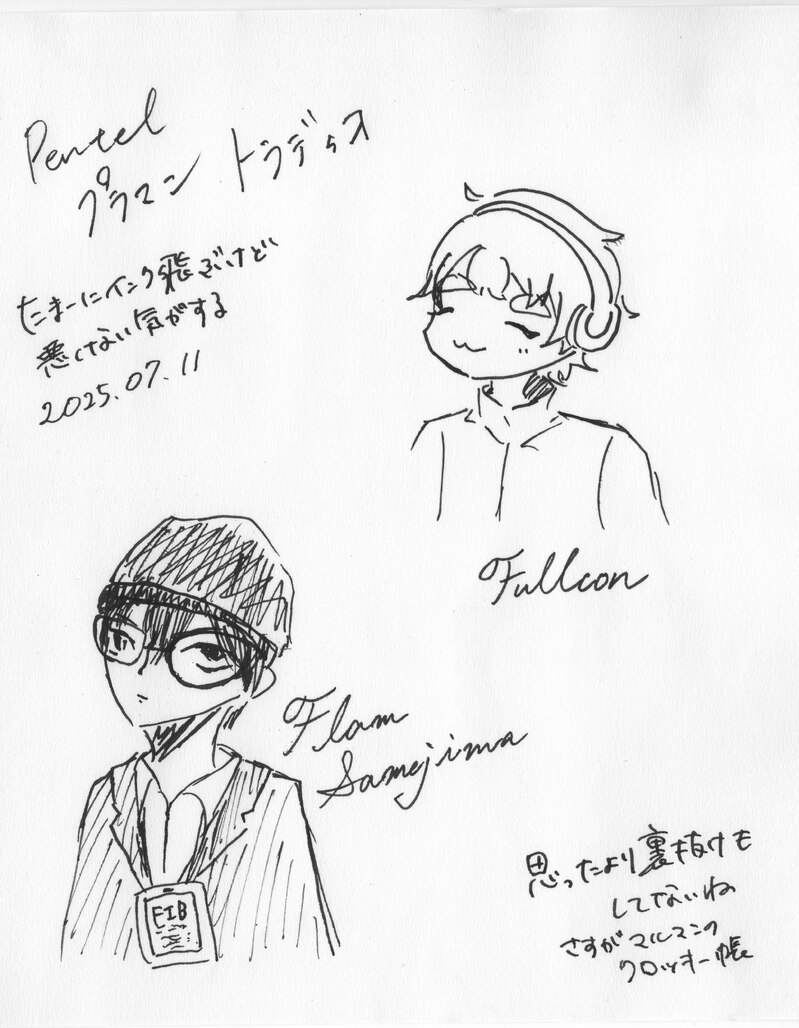 Pentel
プラマン トラディオ
たまーにインク飛ぶけど
悪くない気がする
2025.07.11
Fullcon
Flam
Samejima
EIB
思ったより裏抜けも
してないね
さすがマルマンの
クロッキー帳